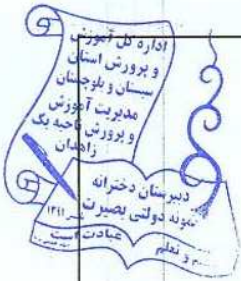 اداره کل آموزش
و پرورش استان
سیستان و بلوچستان
مدیریت آموزش
و پرورش ناحیه یک
زاهدان
دبیرستان دخترانه
نمونه دولتی بصیرت
عبادت است
و تعلم